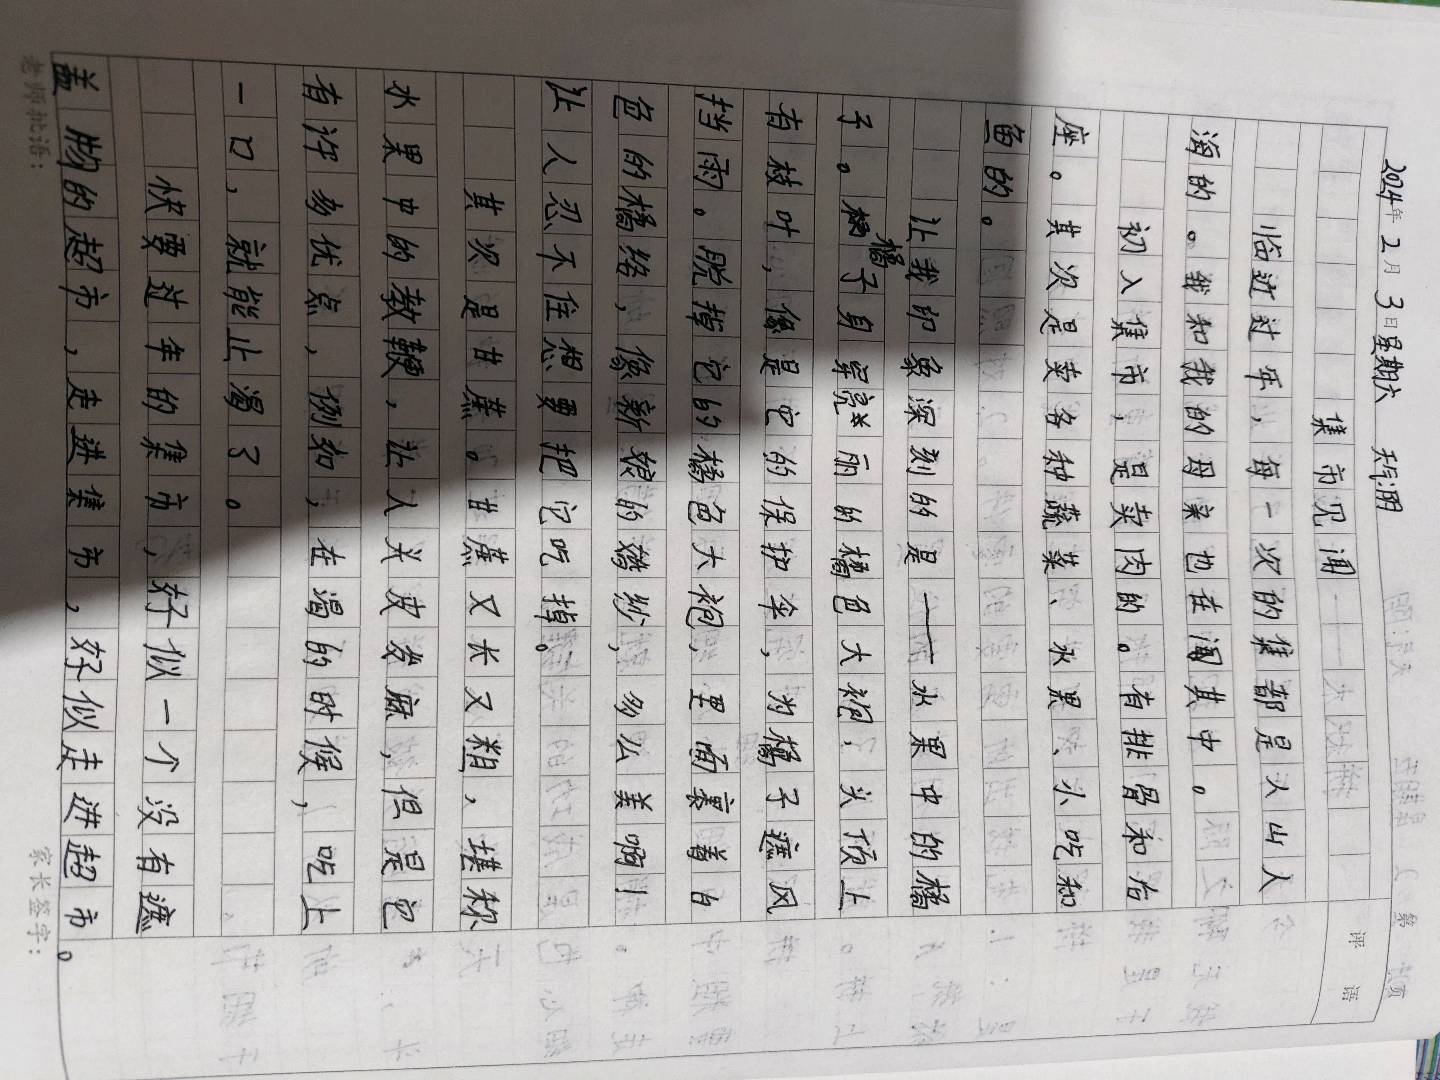 2024年2月3日星期六 天气:阴
集市见闻
评语
临近过年，每一次的集都是人山人
海的。我和我的母亲也在闻其中。
初入集市，是卖肉的。有排骨和
座。其次是卖各种蔬菜、水果、小吃和
鱼的。
让我印象深刻的是——水果中的橘
子。橘子身穿亮丽的橘色大袍；头顶上
有枝叶，像是它的保护伞，为橘子遮风
挡雨。脱掉它的橘色大袍，里面裹着白
色的橘络，像新娘的婚纱，多么美啊！
让人忍不住想要把它吃掉。
其次是甘蔗。甘蔗又长又粗，堪称
水果中的教鞭，让人头皮发麻，但是它
有许多优点，例如，在渴的时候，吃上
一口，就能止渴了。
快要过年的集市，好似一个没有遮
盖物的超市，走进集市，好似走进超市。
老师批语： 家长签字：